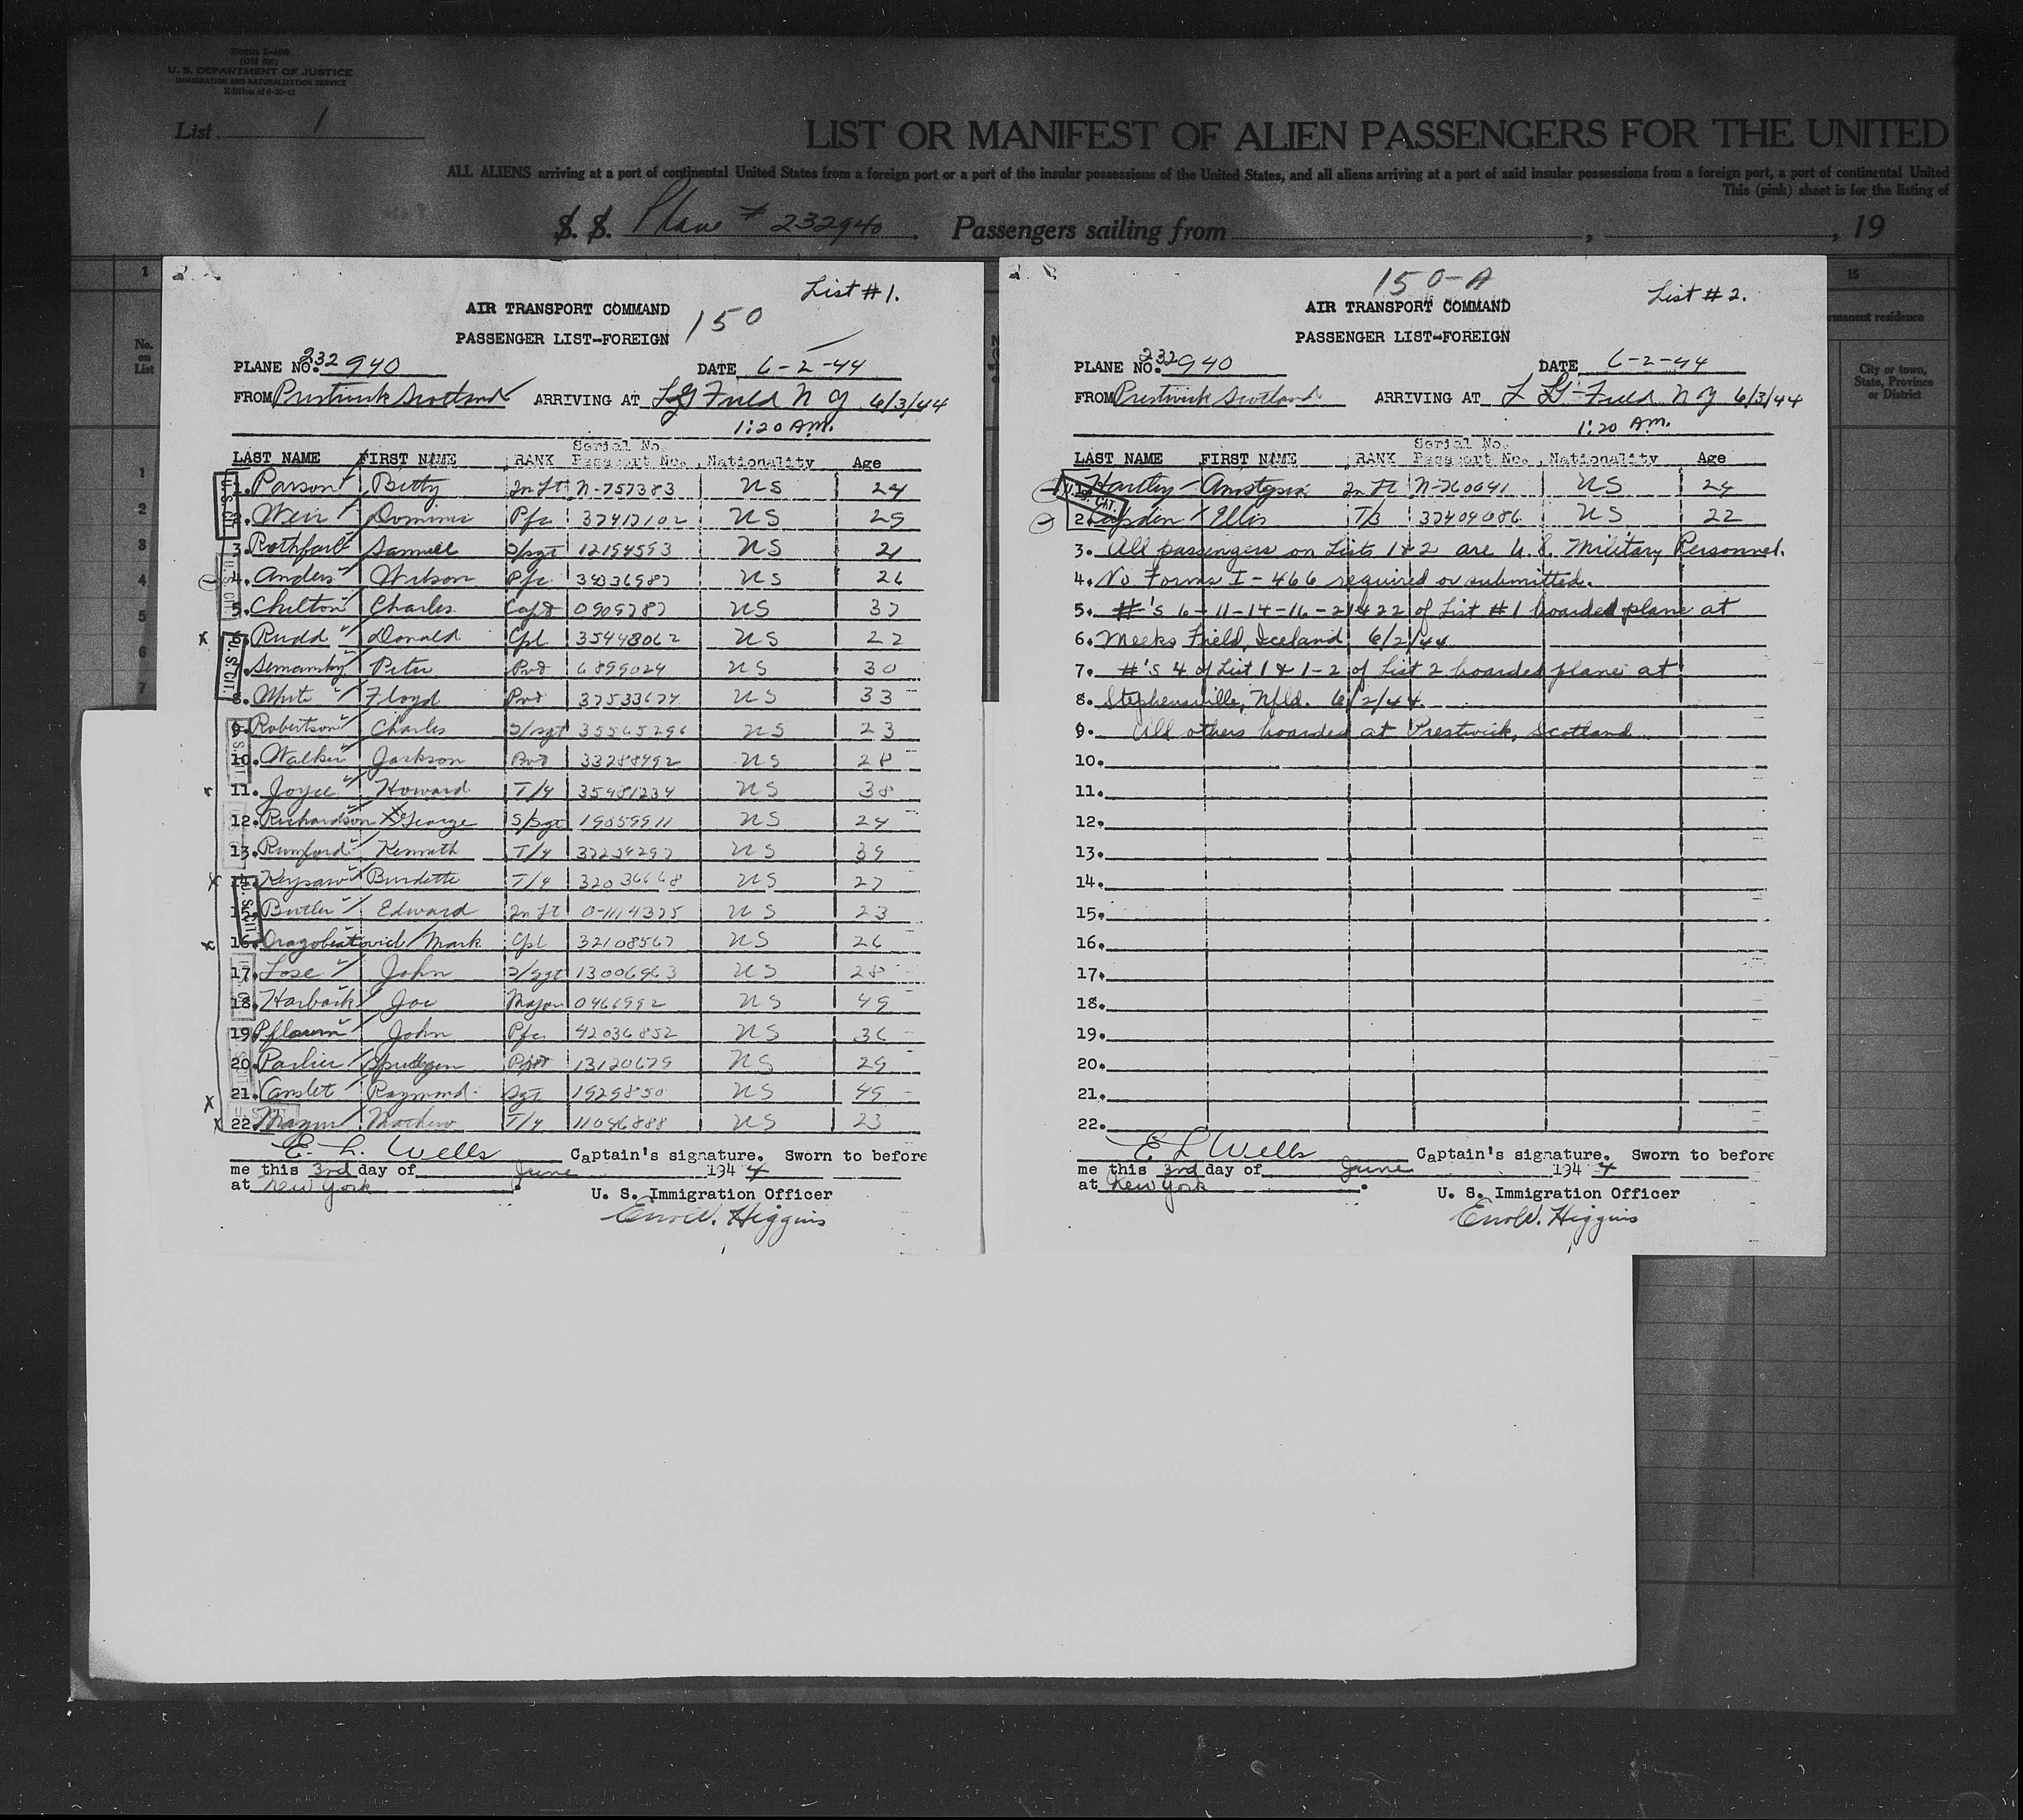 Form I-466
(Old 500)
U. S. DEPARTMENT OF JUSTICE
IMMIGRATION AND NATURALIZATION SERVICE
Edition of 6-20-42
List 1
LIST OR MANIFEST OF ALIEN PASSENGERS FOR THE UNITED
ALL ALIENS arriving at a port of continental United States from a foreign port or a part of the insular possessions of the United States, and all aliens arriving at a port of said insular possessions from a foreign port, a port of continental United
This (pink) sheet is for the listing of
S. S. Plane # 232940. Passengers sailing from , , 19
List #1.
AIR TRANSPORT COMMAND
150
PASSENGER LIST-FOREIGN
PLANE NO. 232940 DATE 6-2-44
FROM Prestwick Scotland ARRIVING AT L G Field N Y 6/3/44
1:20 AM.
Serial No.
LAST NAME FIRST NAME RANK Passport No. Nationality Age
1. Parson Betty 2n Lt N-757383 US 24
2. Weir Dominic Pfc 37417102 US 29
3. Rothfarb Samuel S/sgt 12194593 US 21
4. Anders Wilson Pfc 38036987 US 26
5. Chilton Charles Capt 0909787 US 37
6. Rudd Donald Cpl 35448062 US 22
7. Semansky Peter Pvt 6899024 US 30
8. White Floyd Pvt 37533674 US 33
9. Robertson Charles S/sgt 35565296 US 23
10. Walker Jackson Pvt 33288492 US 28
11. Joyce Howard T/4 35481234 US 38
12. Richardson George S/Sgt 19059911 US 24
13. Rumford Kenneth T/4 37234297 US 39
14. Keysaw Burdette T/4 32036668 US 27
15. Butler Edward 2n Lt 0-1114375 US 23
16. Dragobratovich Mark Cpl 32108567 US 26
17. Lose John S/sgt 13006963 US 28
18. Harback Joe Major 0466992 US 49
19. Pflaum John Pfc 42036852 US 36
20. Parlier Spurdgen 13120679 US 29
21. Vanslet Raymond Sgt 1929850 US 49
22. Mazur Mathew T/4 11046888 US 23
E. L. Wells Captain's signature. Sworn to before
me this 3rd day of June 1944
at New York.
U. S. Immigration Officer
Errol W. Higgins
150-A
List #2.
AIR TRANSPORT COMMAND
PASSENGER LIST-FOREIGN
PLANE NO. 232940 DATE 6-2-44
FROM Prestwick Scotland ARRIVING AT L G Field N Y 6/3/44
1:20 AM.
Serial No.
LAST NAME FIRST NAME RANK Passport No. Nationality Age
1. Hartley 2n Lt N-760041 US 24
2. Ellis T/3 37404086 US 22
3. All passengers on Lists 1 & 2 are U.S. Military Personnel.
4. No Forms I-466 required or submitted.
5. #'s 6-11-14-16-21 & 22 of List #1 boarded plane at
6. Meeks Field, Iceland 6/2/44
7. #'s 4 of List 1 & 1-2 of List 2 boarded plane at
8. Stephensville, Nfld. 6/2/44.
9. All others boarded at Prestwick, Scotland
10.
11.
12.
13.
14.
15.
16.
17.
18.
19.
20.
21.
22.
E L Wells Captain's signature. Sworn to before
me this 3rd day of June 1944
at New York.
U. S. Immigration Officer
Errol W. Higgins
1
No.
on
List
1
2
3
4
5
6
7
15
permanent residence
City or town,
State, Province
or District